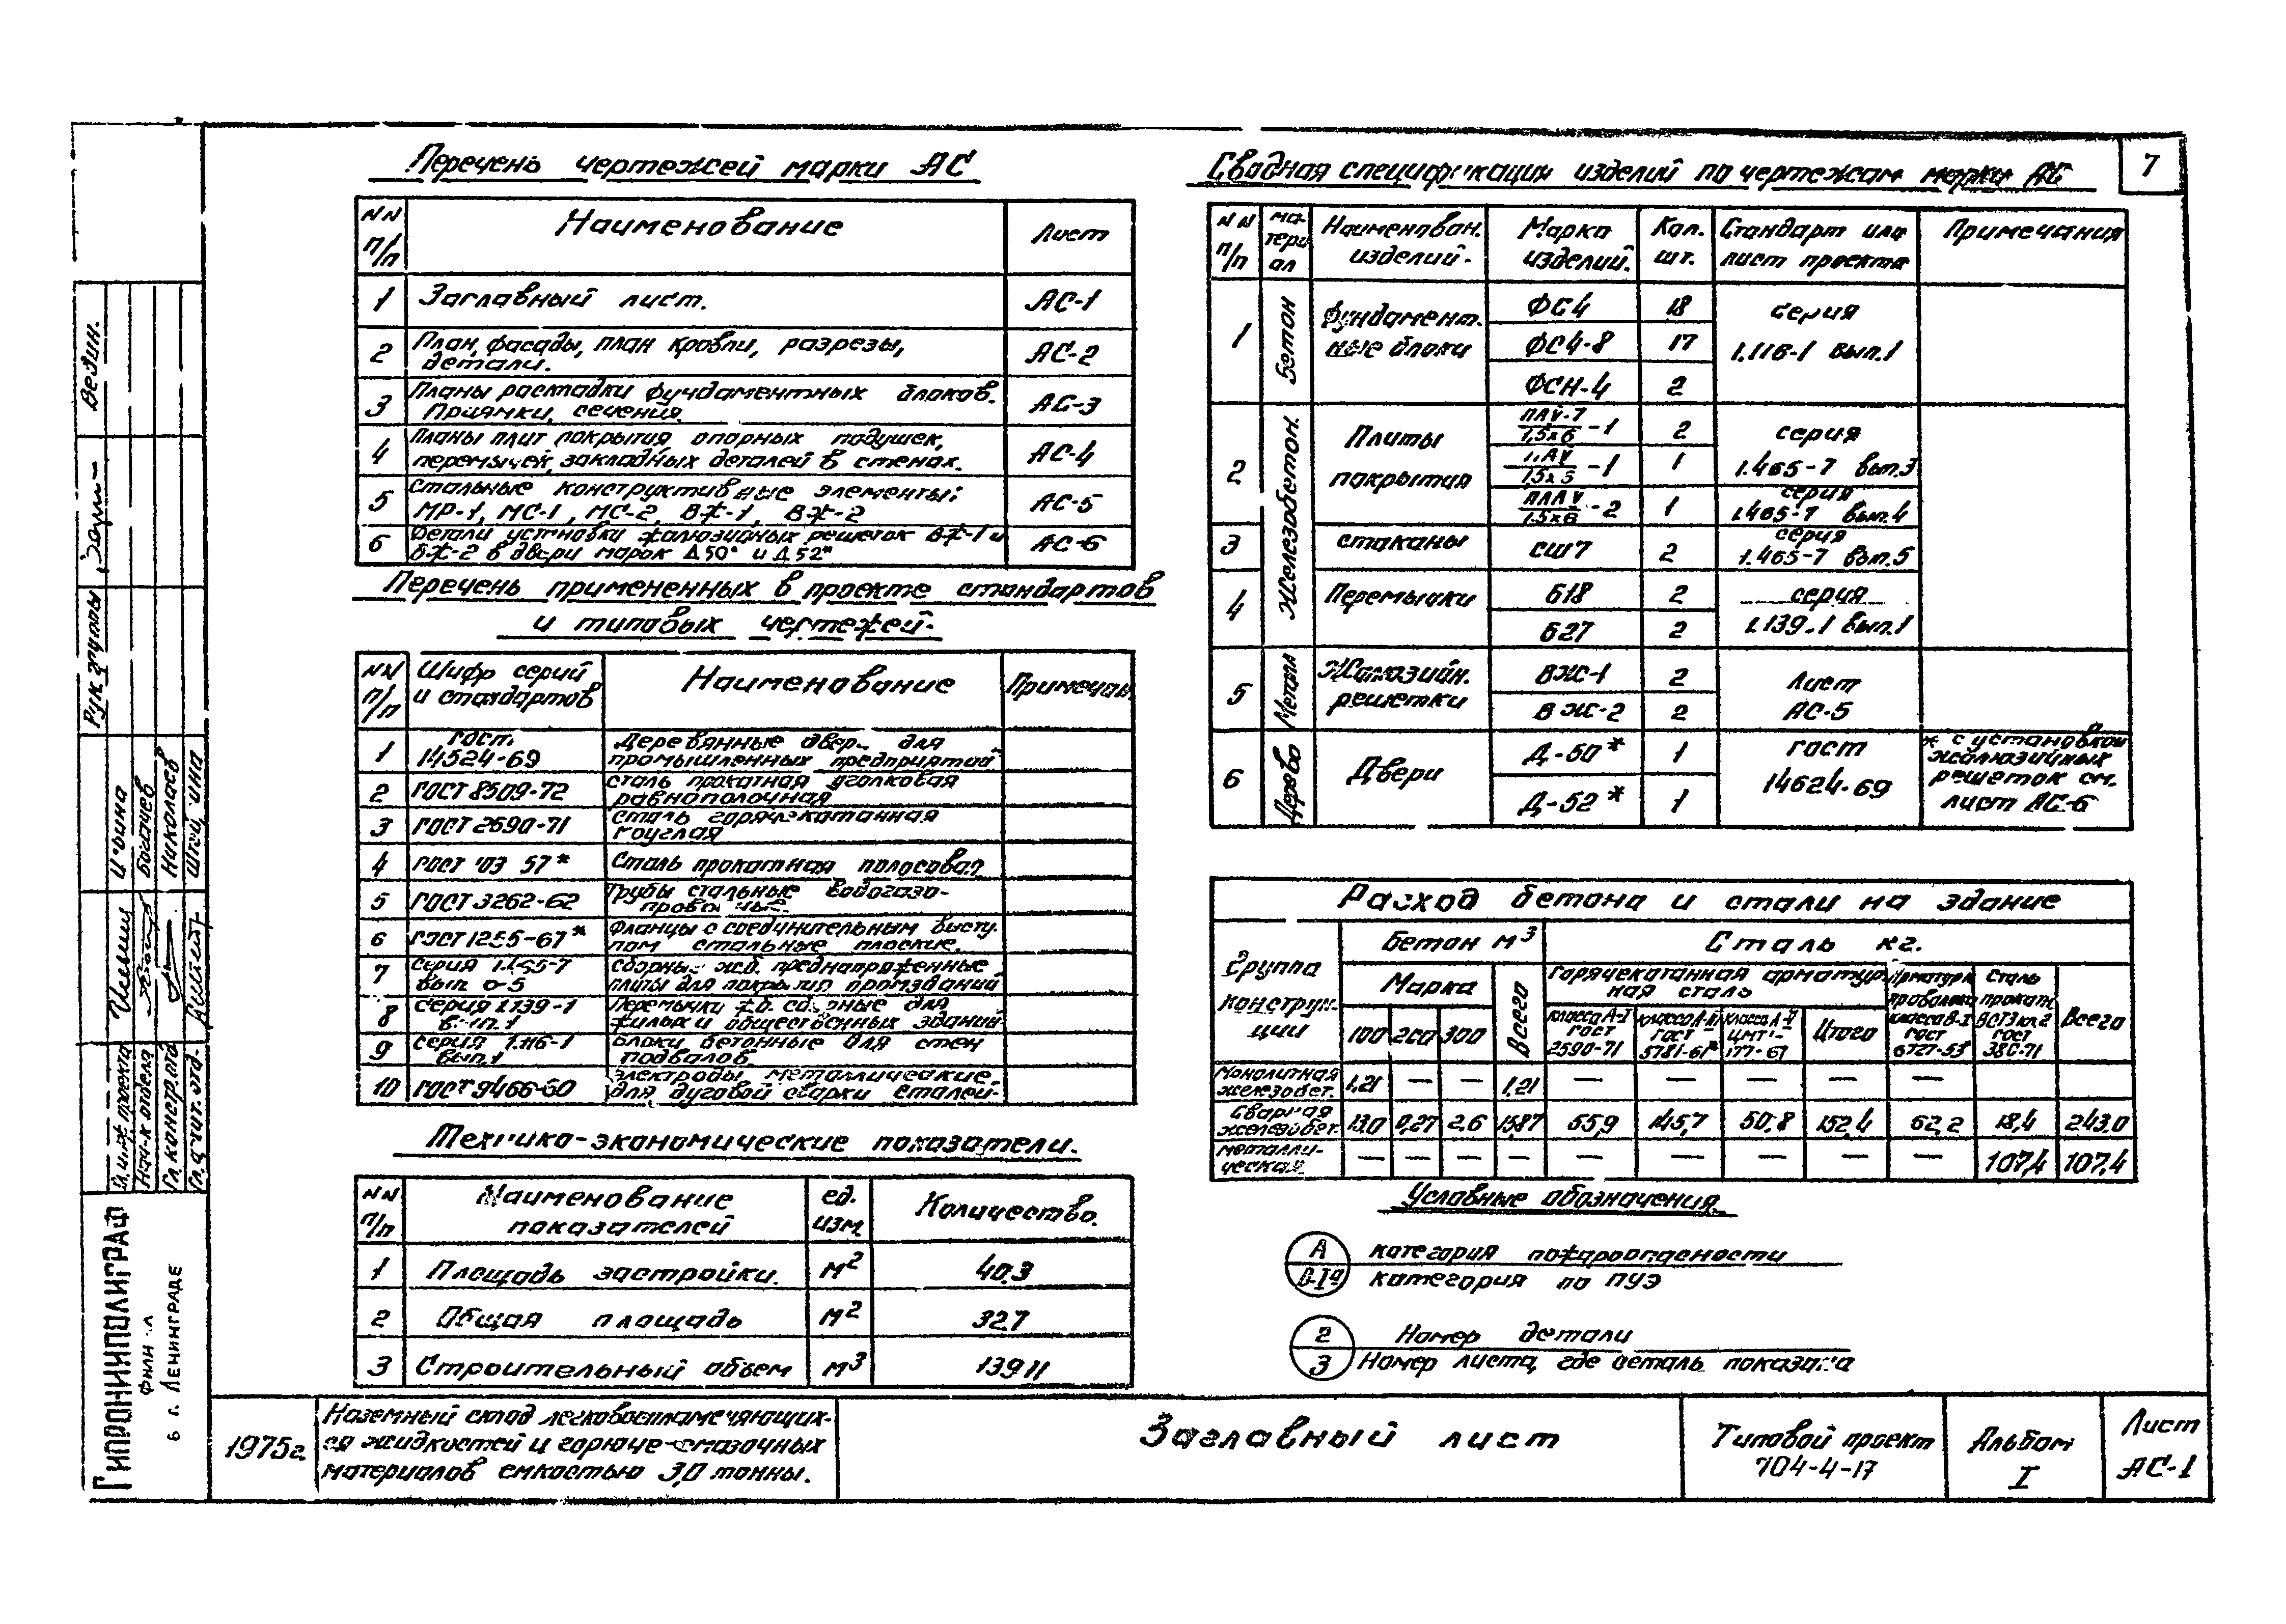 7
Перечень чертежей марки АС
NN п/п Наименование Лист
1 Заглавный лист. АС-1
2 План, фасады, план кровли, разрезы, детали. АС-2
3 Планы раскладки фундаментных блоков. Приямки, сечения. АС-3
4 Планы плит покрытия опорных подушек, перемычек, закладных деталей в стенах. АС-4
5 Стальные конструктивные элементы: МР-1, МС-1, МС-2, ВЖ-1, ВЖ-2 АС-5
6 Детали установки жалюзийных решеток ВЖ-1 и ВЖ-2 в двери марок Д50* и Д52* АС-6
Перечень примененных в проекте стандартов
и типовых чертежей.
NN п/п Шифр серий и стандартов Наименование Примечан.
1 ГОСТ. 14524-69 Деревянные двер. для промышленных предприятий
2 ГОСТ 8509-72 Сталь прокатная уголковая равнополочная
3 ГОСТ 2590-71 Сталь горячекатанная круглая
4 ГОСТ 103 57* Сталь прокатная полосовая
5 ГОСТ 3262-62 Трубы стальные водогазопроводные.
6 ГОСТ 1255-67* Фланцы с соединительным выступом стальные плоские.
7 Серия 1.465-7 вып. 0-5 Сборные ж.б. преднапряженные плиты для покрытия промзданий
8 Серия 1.139-1 вып. 1 Перемычки ж.б. сборные для жилых и общественных зданий
9 Серия 1.116-1 вып. 1 Блоки бетонные для стен подвалов
10 ГОСТ 9466-60 Электроды металлические для дуговой сварки сталей.
Технико-экономические показатели.
NN п/п Наименование показателей ед. изм. Количество.
1 Площадь застройки. м² 40.3
2 Общая площадь м² 32.7
3 Строительный объем м³ 139.11
Сводная спецификация изделий по чертежам марки АС
NN п/п материал Наименован. изделий. Марка изделий. Кол. шт. Стандарт или лист проекта Примечания
1 Бетон Фундаментные блоки ФС4 18 серия 1.116-1 вып.1
ФС4-8 17
ФСН-4 2
2 Железобетон. Плиты покрытия ПАV-7/1,5х6 -1 2 серия 1.465-7 вып.3
1
ПЛАV/1.5х6 -2 1 серия 1.465-7 вып.4
3 стаканы СШ7 2 серия 1.465-7 вып.5
4 Перемычки Б18 2 серия 1.139-1 вып.1
Б27 2
5 Металл Жалюзийн. решетки ВЖ-1 2 Лист АС-5
ВЖ-2 2
6 Дерево Двери Д-50* 1 ГОСТ 14624-69 * с установкой жалюзийных решеток см. лист АС-6
Д-52* 1
Расход бетона и стали на здание
Группа конструкции Бетон м³ Сталь кг.
Марка Всего Горячекатанная арматурная сталь Арматурн. проволока класса В-I ГОСТ 6727-53 Сталь прокатн. ВСТ3кп2 ГОСТ 380-71 Всего
100 200 300 класса А-I ГОСТ 2590-71 класса А-III ГОСТ 5781-61* класса А-IV ЦМТ1-177-67 Итого
Монолитная железобет. 1.21 — — 1.21 — — — — —
Сборная железобет. 13.0 0,27 2.6 15.87 55,9 145,7 50,8 152,4 62,2 18.4 243.0
металлическая — — — — — — — — — 107,4 107,4
Условные обозначения.
А категория пожароопасности
В-Iа категория по ПУЭ
2 Номер детали
3 Номер листа, где деталь показана
1975г.
Наземный склад легковоспламеняющих-
ся жидкостей и горюче-смазочных
материалов емкостью 3,0 тонны.
Заглавный лист
Типовой проект
704-4-17
Альбом
I
Лист
АС-1
ГИПРОНИИПОЛИГРАФ
филиал
в г. Ленинграде
Гл. инж. проекта
Нач-к отдела Богачев
Гл. констр. Николаев
Рук. группы